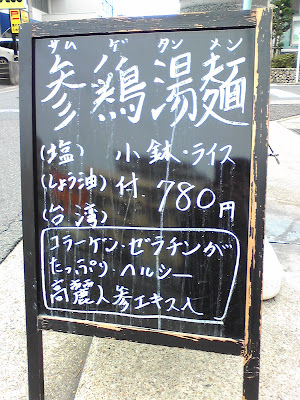 サム ゲ タン メン
参鶏湯麺
(塩) 小鉢・ライス
(しょう油) 付 780円
(台湾)
コラーゲン・ゼラチンが
たっぷり・ヘルシー
高麗人参エキス入